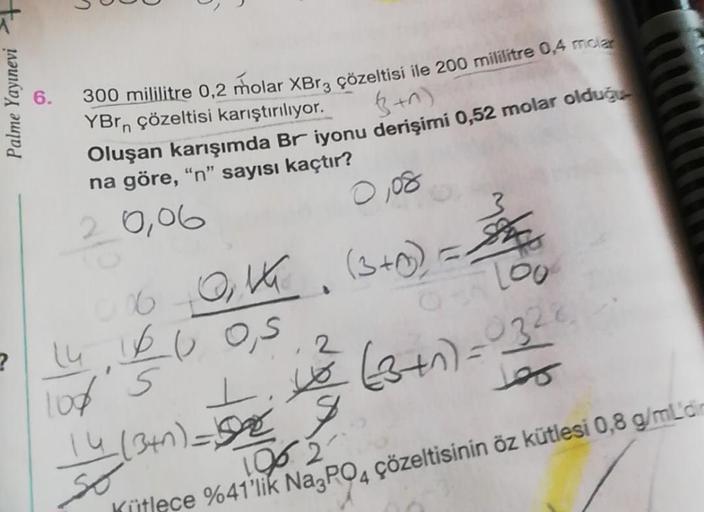 Palme Yayınevi
6. 300 mililitre 0,2 molar XBr₃ çözeltisi ile 200 mililitre 0,4 molar
YBrₙ çözeltisi karıştırılıyor.
(3+n)
Oluşan karışımda Br⁻ iyonu derişimi 0,52 molar olduğu-
na göre, “n” sayısı kaçtır?
0,06 0,08
0,14/0,5 . (3+n) = 
3
100
14/100 . 10/5
. 2 (3+n) =
14/50 (3+n) = 52/100
Kütlece %41'lik Na₃PO₄ çözeltisinin öz kütlesi 0,8 g/mL'dir